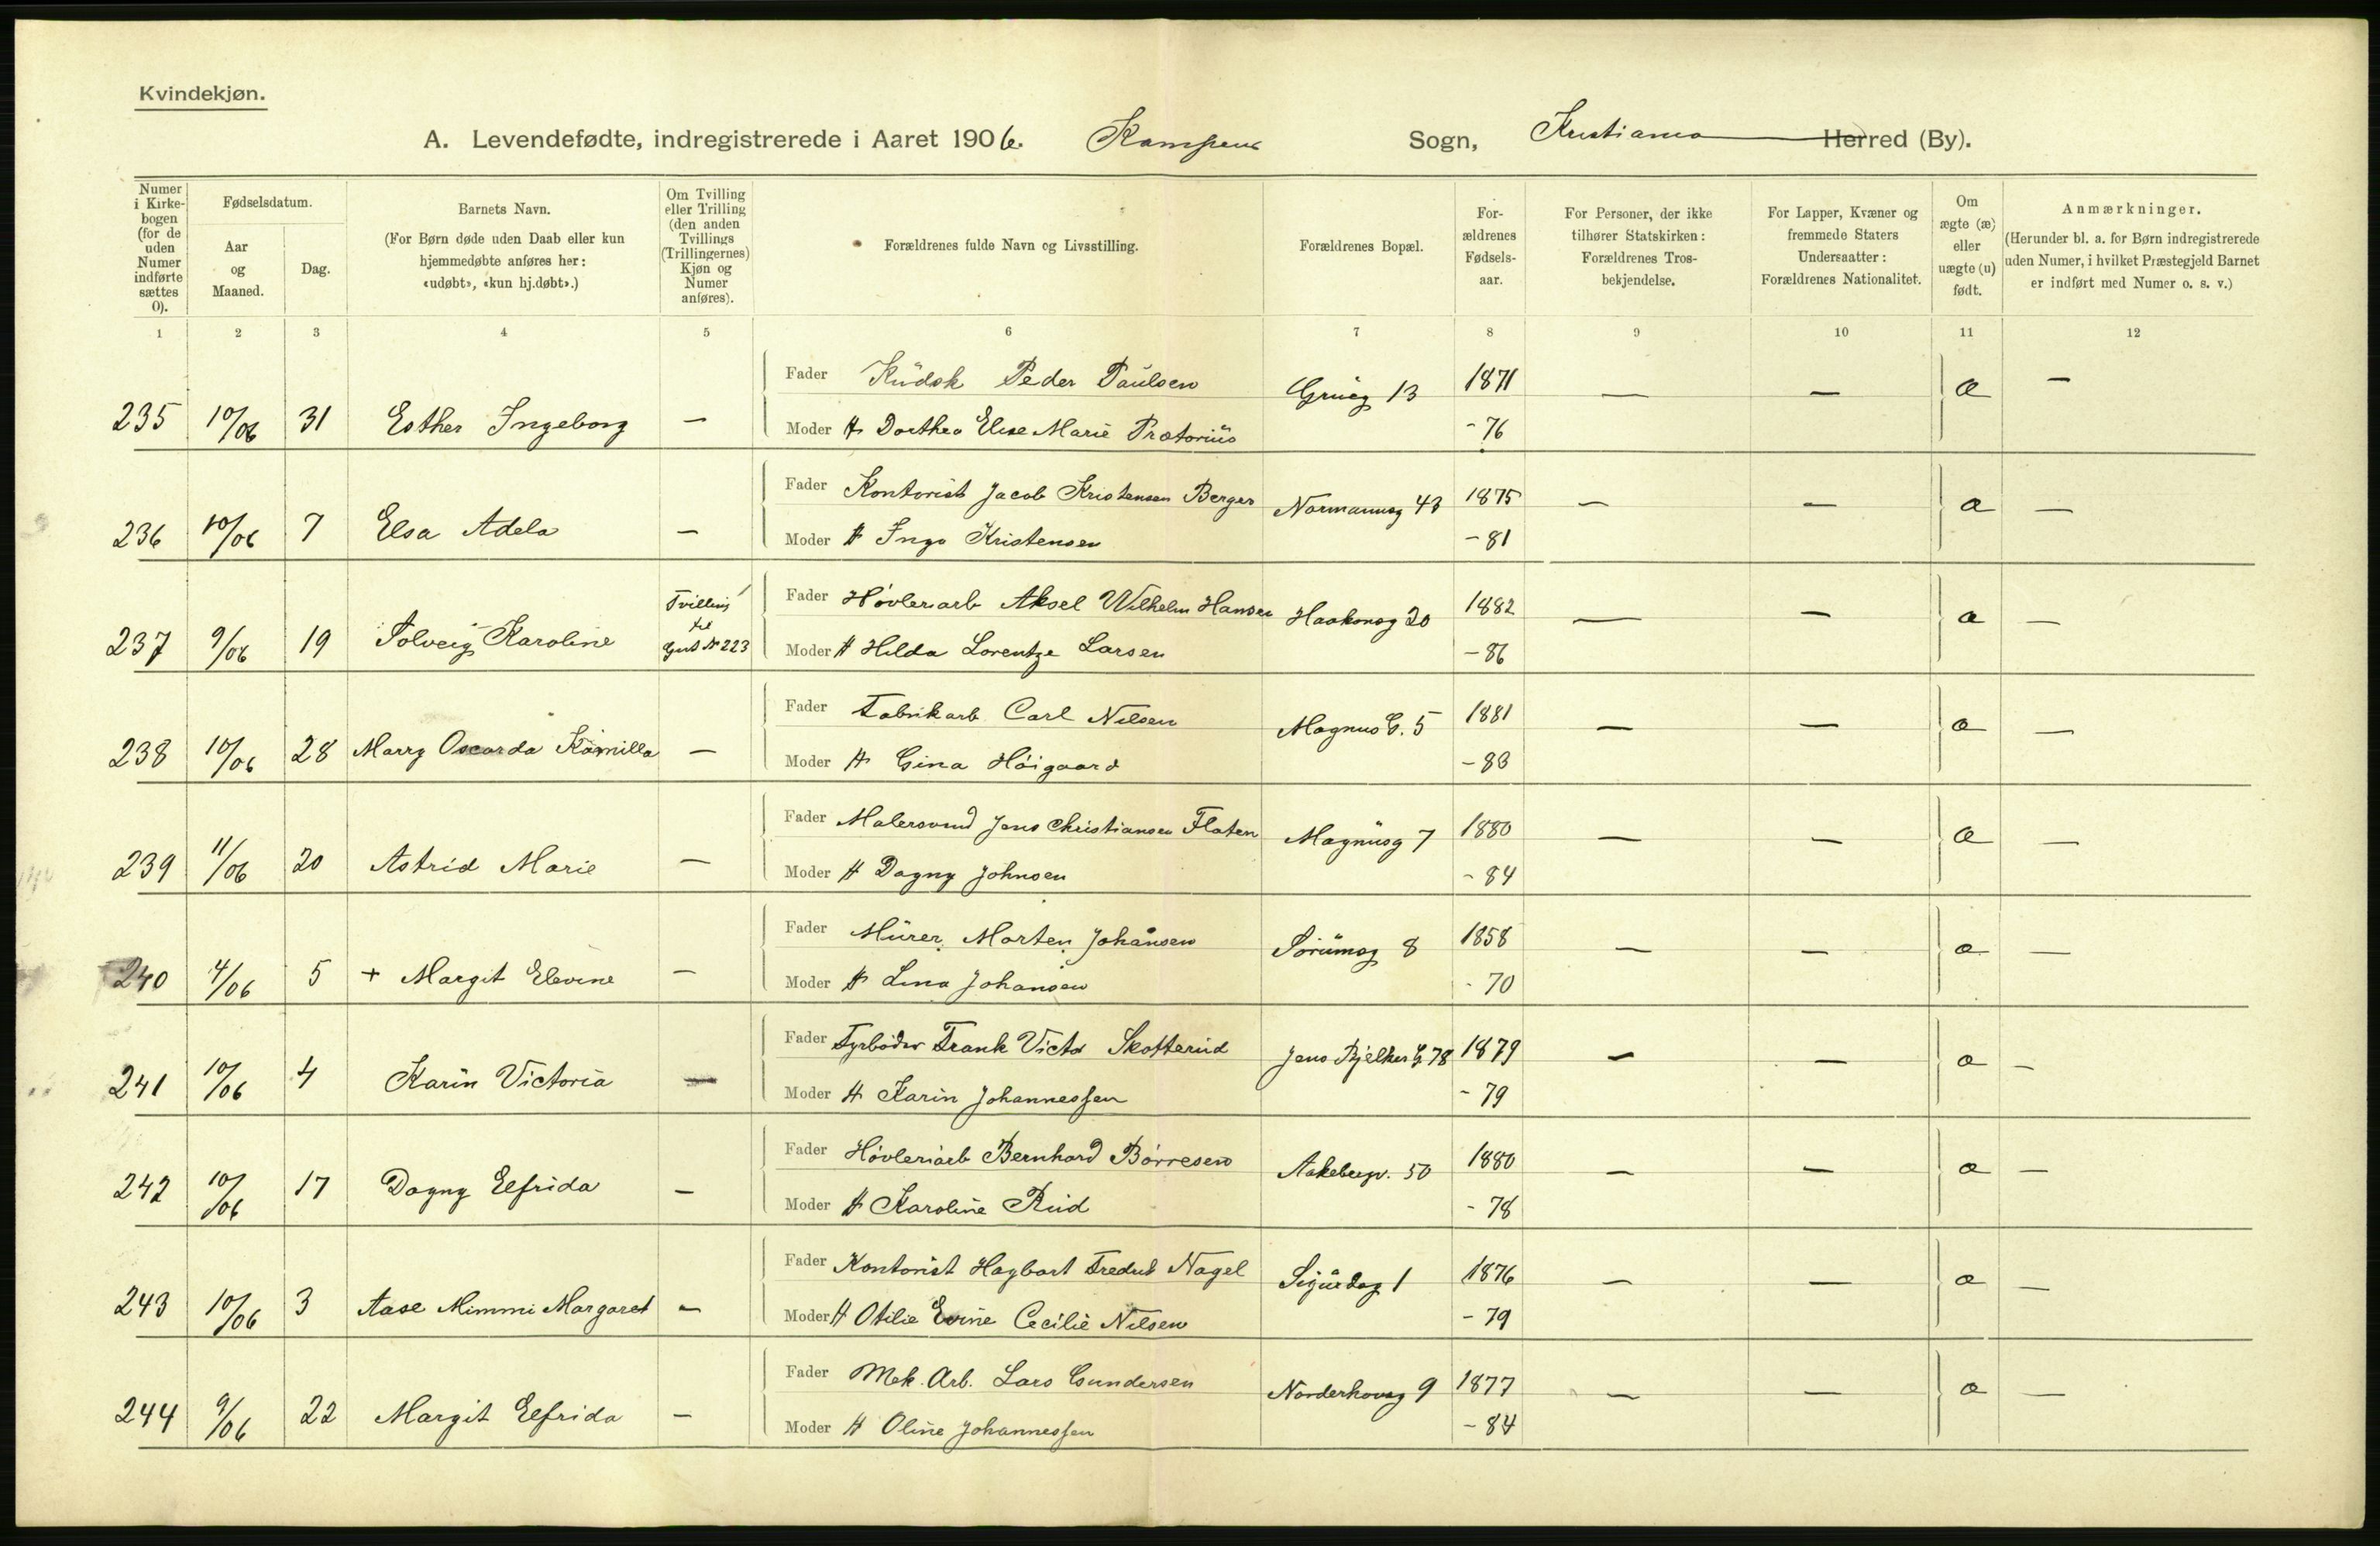 Kvindekjøn.
A. Levendefødte, indregistrerede i Aaret 1906. Kampens Sogn, Kristiania Herred (By).
Numer i Kirkebogen (for de uden Numer indførte sættes 0).
Fødselsdatum.
Aar og Maaned.
Dag.
Barnets Navn.
(For Børn døde uden Daab eller kun hjemmedøbte anføres her: «udøbt», «kun hj.døbt».)
Om Tvilling eller Trilling (den anden Tvillings (Trillingernes) Kjøn og Numer anføres).
Forældrenes fulde Navn og Livsstilling.
Forældrenes Bopæl.
Forældrenes Fødselsaar.
For Personer, der ikke tilhører Statskirken: Forældrenes Trosbekjendelse.
For Lapper, Kvæner og fremmede Staters Undersaatter: Forældrenes Nationalitet.
Om ægte (æ) eller uægte (u) født.
Anmærkninger.
(Herunder bl. a. for Børn indregistrerede uden Numer, i hvilket Præstegjeld Barnet er indført med Numer o. s. v.)
1 2 3 4 5 6 7 8 9 10 11 12
Fader Kudsk Peder Paulsen Grueg 13 1871 — — æ —
235 10/06 31 Esther Ingeborg — Moder H Dorthea Elise Marie Prætorius - 76
Fader Kontorist Jacob Kristensen Berger Normannsg 43 1875 — — æ —
236 10/06 7 Elsa Adela — Moder H Inga Kristensen - 81
Fader Høvleriarb Aksel Wilhelm Hansen Haakonsg 20 1882 — — æ —
237 9/06 19 Solveig Karoline Tvilling til Gut N 223 Moder H Hilda Lorentze Larsen - 86
Fader Fabrikarb Carl Nilsen Magnus G. 5 1881 — — æ —
238 10/06 28 Marry Oscarda Kamilla — Moder H Gina Høigaard - 83
Fader Malersvend Jens Christiansen Flaten Magnusg 7 1880 — — æ —
239 11/06 20 Astrid Marie — Moder H Dagny Johnsen - 84
Fader Murer Morten Johansen Sørumsg 8 1858 — — æ —
240 4/06 5 + Margit Elevine — Moder H Lina Johansen - 70
Fader Fyrbøder Frank Victor Skotterud Jens Bjelkes G. 78 1879 — — æ —
241 10/06 4 Karin Victoria — Moder H Karin Johannessen - 79
Fader Høvleriarb Bernhard Børresen Aakebergv. 50 1880 — — æ —
242 10/06 17 Dagny Elfrida — Moder H Karoline Rud - 78
Fader Kontorist Hagbart Fredrik Nagel Sigurdsg 1 1876 — — æ —
243 10/06 3 Aase Mimmi Margaret — Moder H Otilie Evine Cecilie Nilsen - 79
Fader Mek. Arb. Lars Gundersen Norderhovsg 9 1877 — — æ —
244 9/06 22 Margit Elfrida — Moder H Oline Johannessen - 84